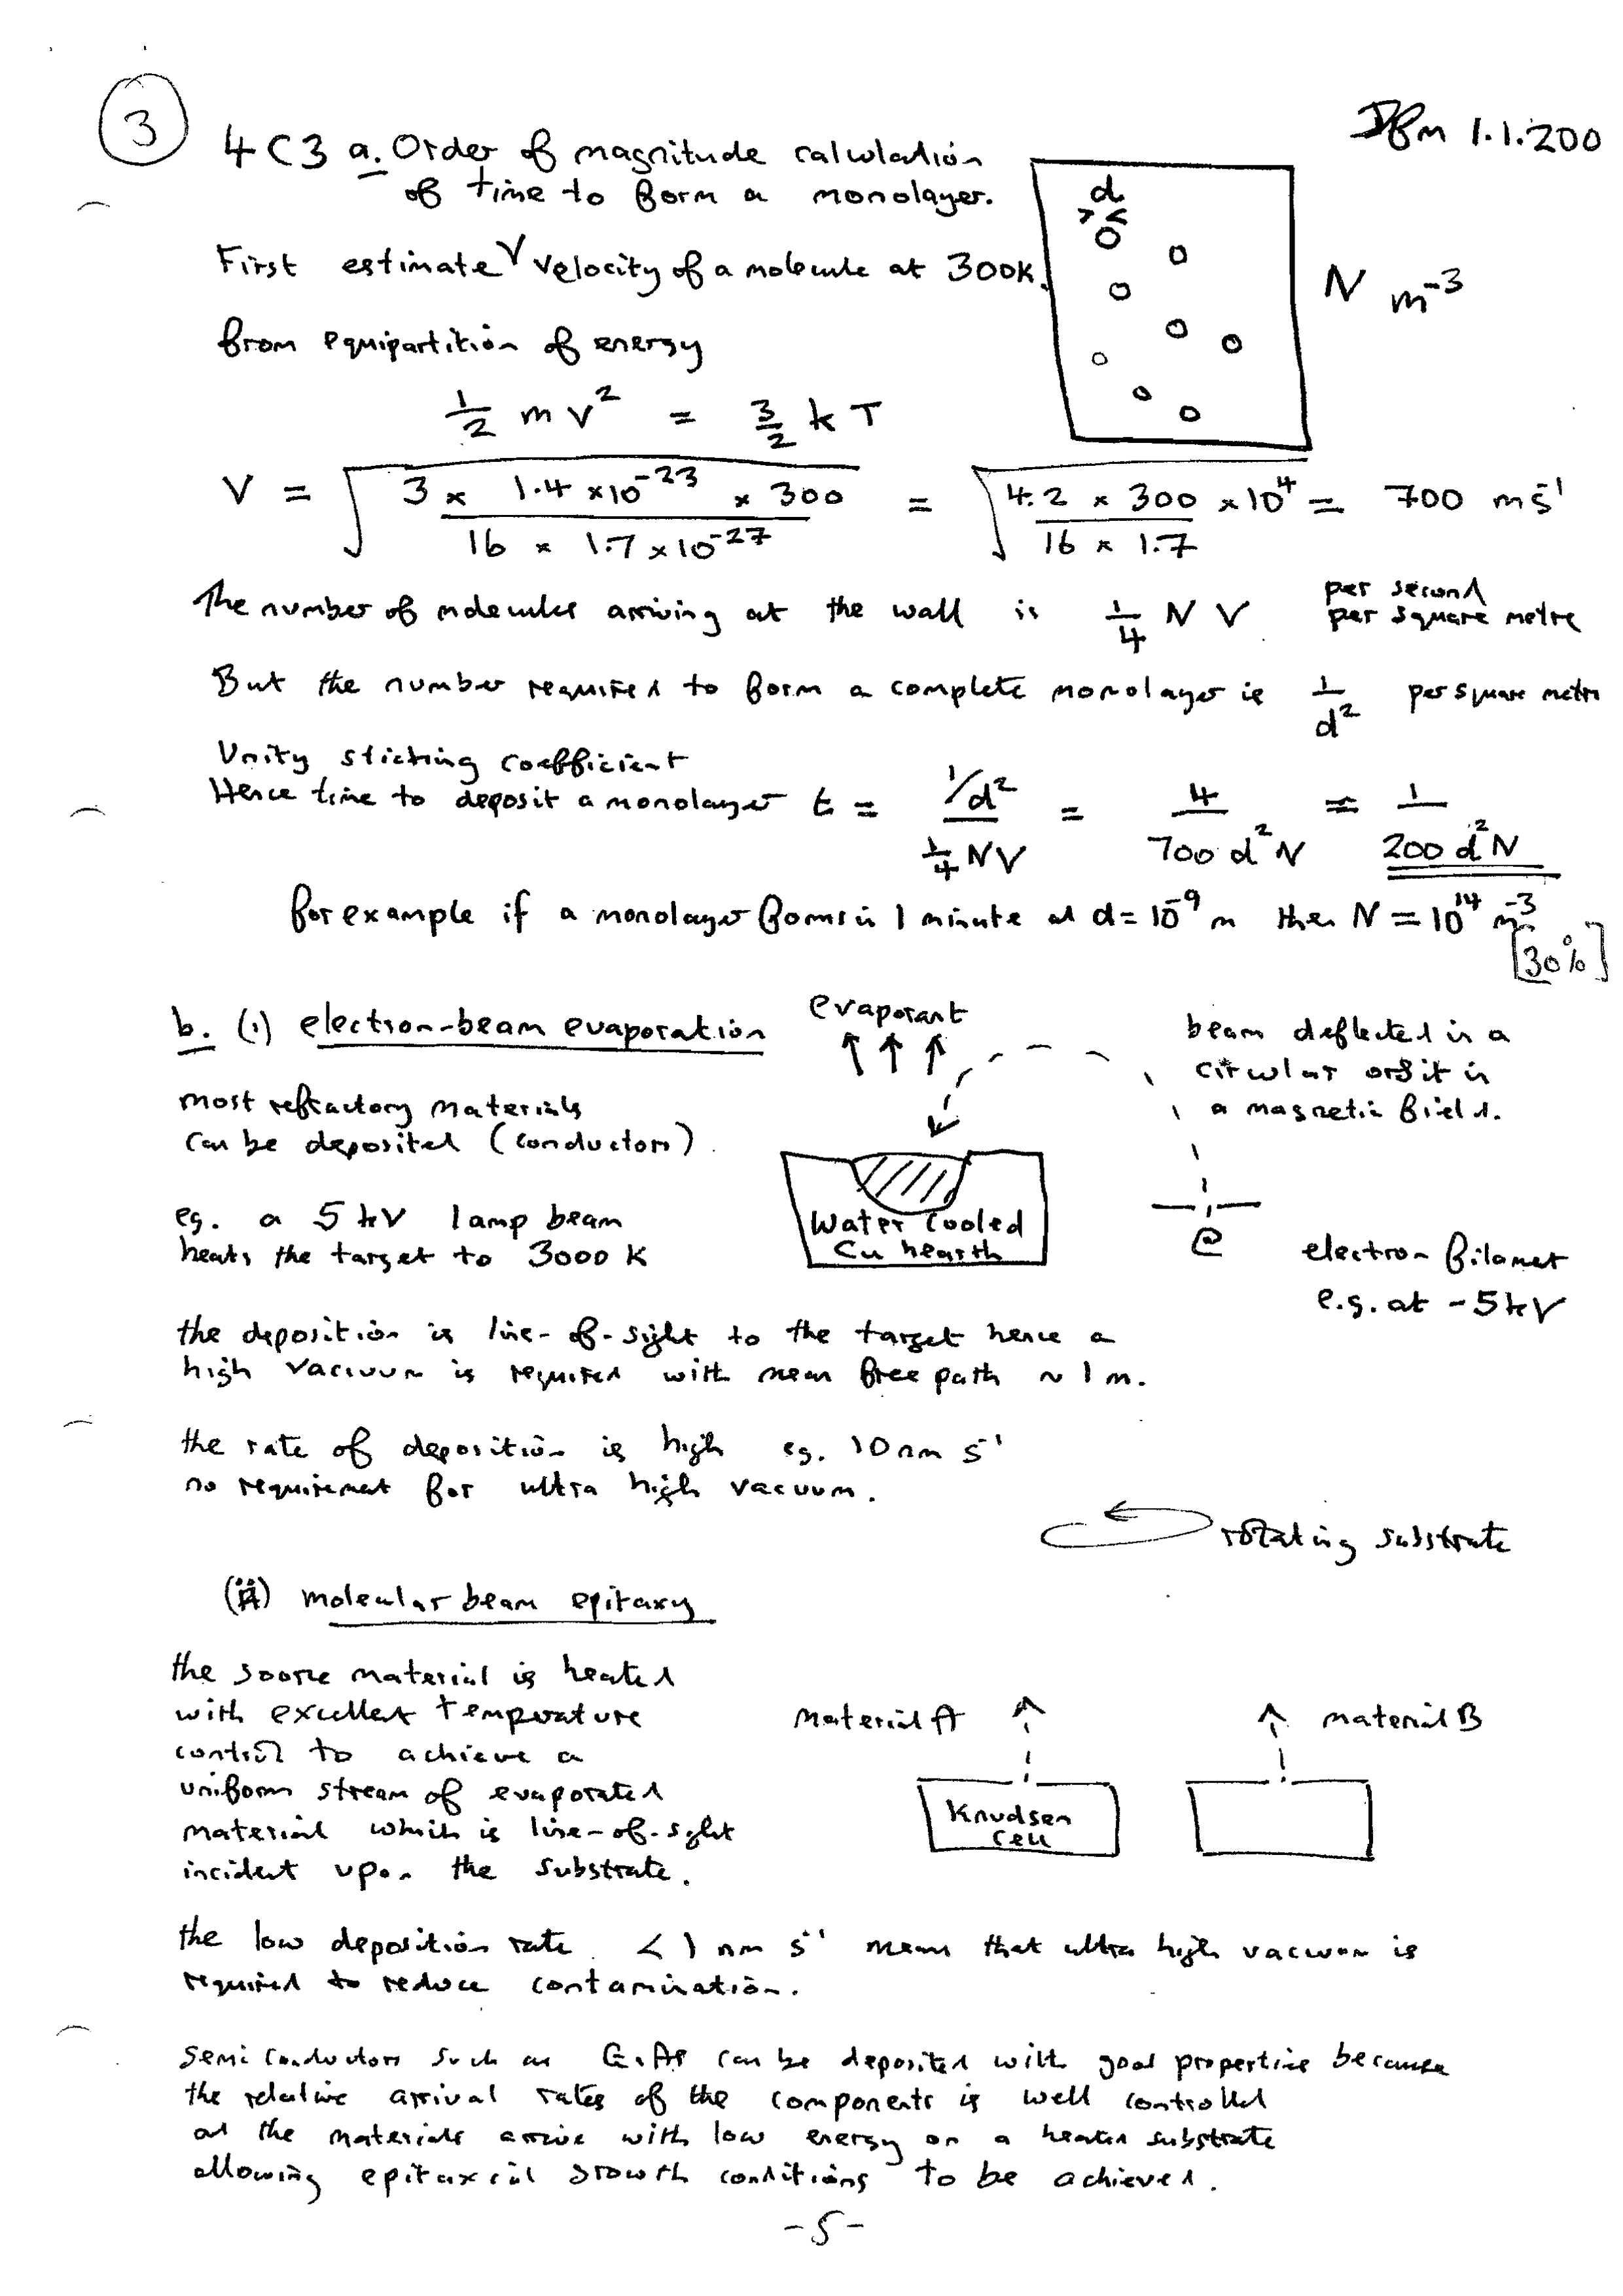 3
4C3 a. Order of magnitude calculation
of time to form a monolayer.
1.1.200
d
> <
N m⁻³
First estimate V velocity of a molecule at 300K.
from equipartition of energy
½ m v² = 3/2 k T
V = √(3 × 1.4 × 10⁻²³ × 300 / 16 × 1.7 × 10⁻²⁷) = √(4.2 × 300 × 10⁴ / 16 × 1.7) = 700 ms⁻¹
The number of molecules arriving at the wall is ¼ N V per second
per square metre
But the number required to form a complete monolayer is 1/d² per square metre
Unity sticking coefficient
Hence time to deposit a monolayer t = (1/d²)/(¼ NV) = 4/(700 d² N) ≈ 1/(200 d² N)
for example if a monolayer forms in 1 minute at d = 10⁻⁹ m then N = 10¹⁴ m⁻³
[30%]
b. (i) electron-beam evaporation
evaporant
beam deflected in a
circular orbit in
a magnetic field.
most refractory materials
can be deposited (conductors).
eg. a 5 kV 1 amp beam
heats the target to 3000 K
Water Cooled
Cu hearth
e
electron filament
e.g. at -5kV
the deposition is line-of-sight to the target hence a
high vacuum is required with mean free path ~ 1 m.
the rate of deposition is high eg. 10 nm s⁻¹
no requirement for ultra high vacuum.
rotating substrate
(ii) molecular beam epitaxy
the source material is heated
with excellent temperature
control to achieve a
uniform stream of evaporated
material which is line-of-sight
incident upon the substrate.
material A
material B
Knudsen
Cell
the low deposition rate < 1 nm s⁻¹ means that ultra high vacuum is
required to reduce contamination.
semiconductors such as GaAs can be deposited with good properties because
the relative arrival rates of the components is well controlled
and the materials arrive with low energy on a heated substrate
allowing epitaxial growth conditions to be achieved.
-5-